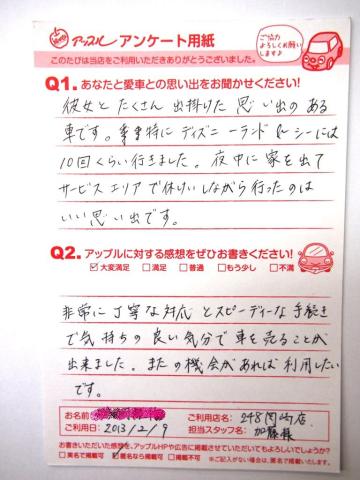 アップル アンケート用紙
ご協力
よろしくお願い
します♪
このたびは当店をご利用いただきありがとうございました。
Q1. あなたと愛車との思い出をお聞かせください!
彼女とたくさん出掛けた思い出のある
車です。特にディズニーランド&シーには
10回くらい行きました。夜中に家を出て
サービスエリアで休けいしながら行ったのは
いい思い出です。
Q2. アップルに対する感想をぜひお書きください!
☑大変満足 □満足 □普通 □もう少し □不満
非常に丁寧な対応とスピーディーな手続き
で気持ちの良い気分で車を売ることが
出来ました。またの機会があれば利用したい
です。
お名前:
ご利用店名: 248岡崎店
ご利用日: 2013/2/9
担当スタッフ名: 加藤様
お書きいただいた感想を、アップルHPや広告に掲載させていただいてもよろしいでしょうか?
□実名で掲載可 ☑匿名なら掲載可 □掲載不可 ※ご記入がない場合は、匿名で掲載いたします。